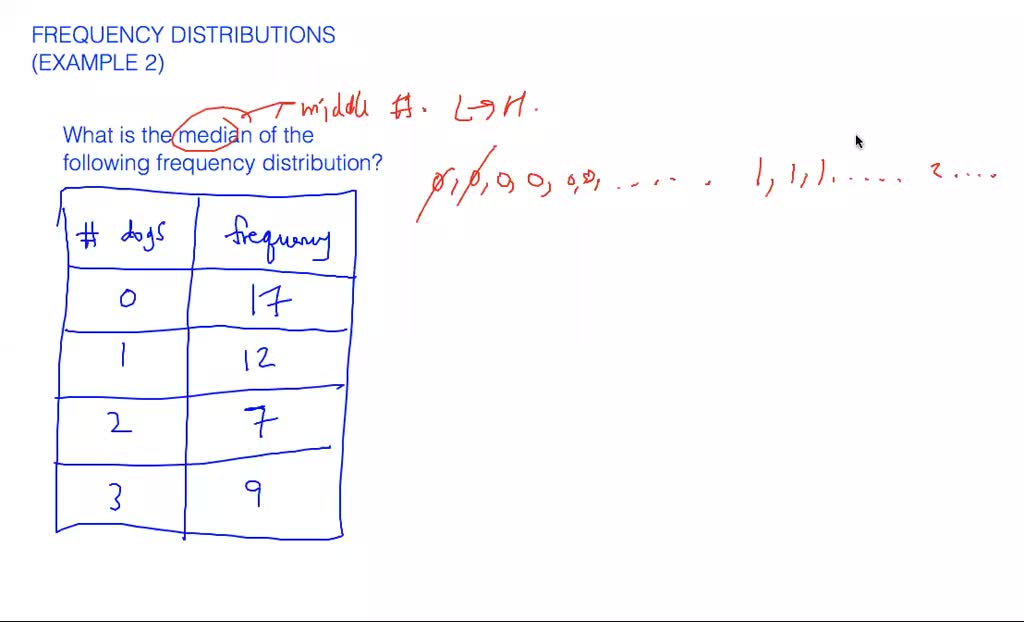 FREQUENCY DISTRIBUTIONS
(EXAMPLE 2)
middle #. L→H.
What is the median of the
following frequency distribution?
0, 0, 0, 0, 0, 0, ....... 1, 1, 1...... 2....
# dogs frequency
0 17
1 12
2 7
3 9